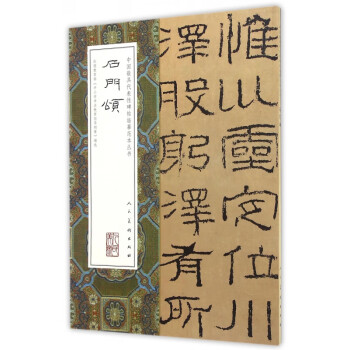 惟巛靈定位川
澤股躬澤有所
中国最具代表性碑帖临摹范本丛书
石門頌
人民美術出版社